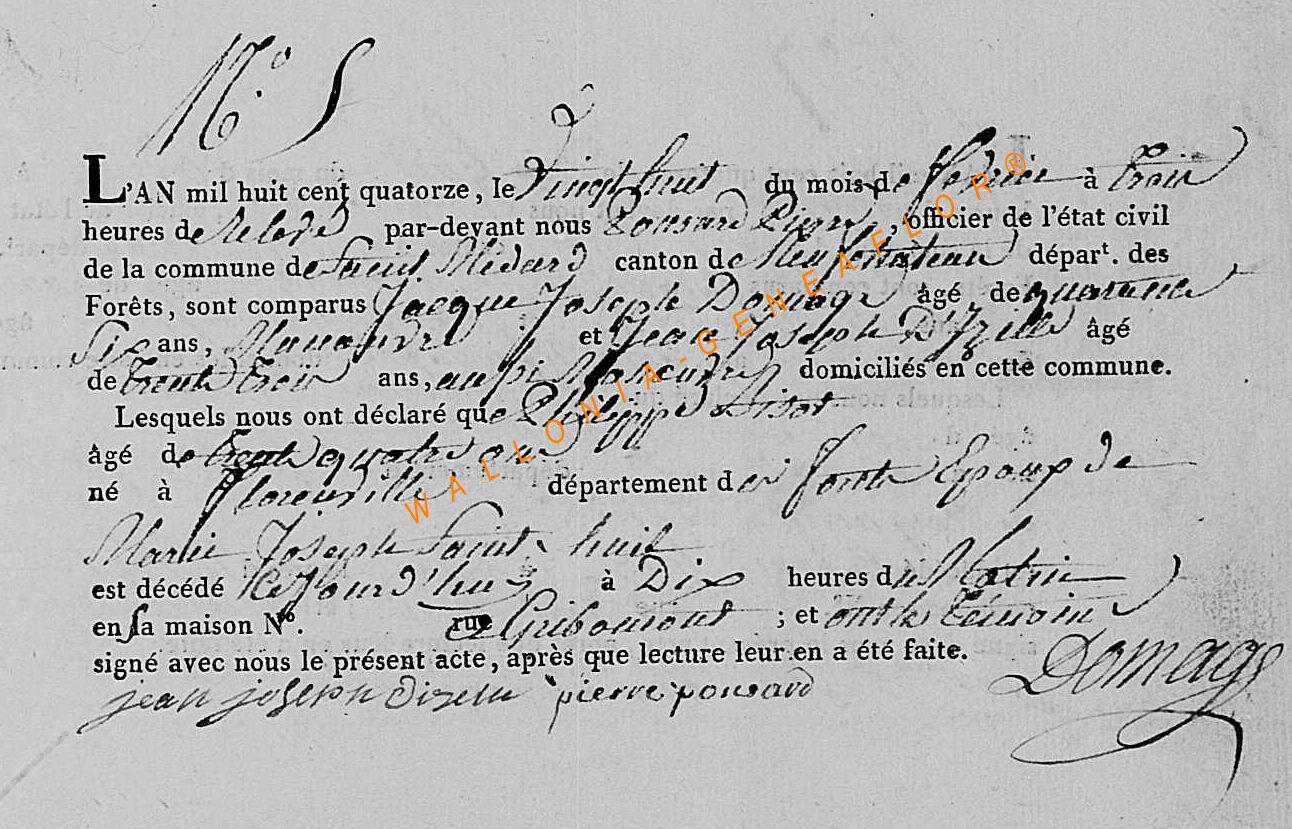 N.º 5
L'AN mil huit cent quatorze, le vingt huit du mois de fevrier à trois
heures de relevé par-devant nous Pousard Pierre, officier de l'état civil
de la commune de Saint Médard canton de Neufchateau départ. des
Forêts, sont comparus Jacque Joseph Domage âgé de quarante
Six ans, Manœuvre et Jean Joseph D'Izelle âgé
de trente trois ans, aussi Manœuvre domiciliés en cette commune.
Lesquels nous ont déclaré que Philippe
âgé de trente quatre ans
né à Florenville département des forets Epoux de
Marie Joseph Saint huit
est décédé Cejourd'hui à Dix heures du Matin
en sa maison N.º rue a Gribomont ; et ont les témoins
signé avec nous le présent acte, après que lecture leur en a été faite.
jean joseph dizelle pierre pousard Domage
WALLONIA-GENEAELOR®